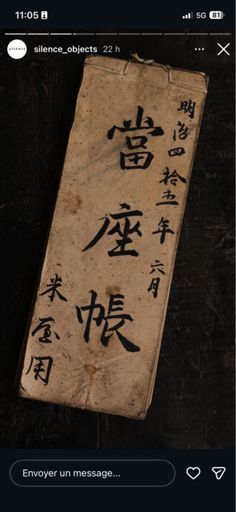 11:05
5G
81
silence_objects 22 h
明治四拾五年六月
當座帳
米屋用
Envoyer un message...